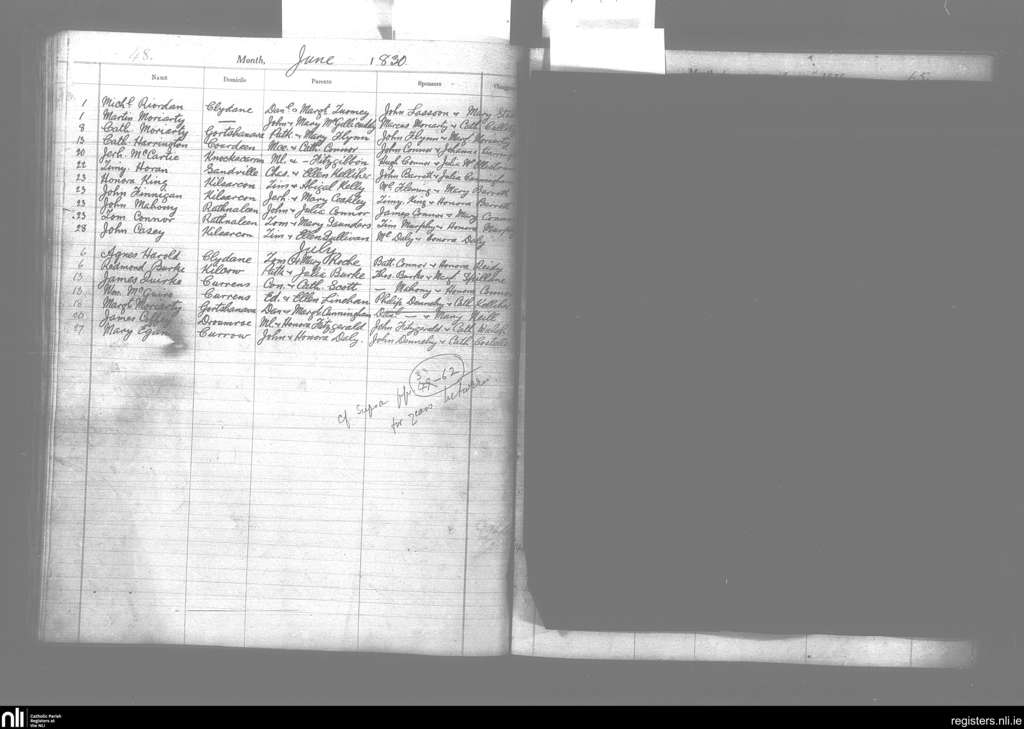 48.
Month, June 1830
Name Domicile Parents Sponsors
1 Michl Riordan Clydane Danl & Margt Twomey John Sasson & Mary
1 Martin Moriarty — John & Mary McGillicuddy Marcus Moriarty & Cath
8 Cath. Moriarty Gortshanava Patk & Mary Flynn John Flynn & Margt Moriarty
13 Cath. Harrington Coardeen Mce & Cath. Connor John Connor & Johanna
20 Jerh. McCartie Knockacarra Ml. & — Fitzgibbon Hugh Connor & Julia
22 Timy. Horan Sandville Chas. & Ellen Kelliher John Barrett & Julia Cummins
23 Honora King Kilsarcon Tim & Abigal Kelly Wm Fleming & Mary Barrett
23 John Finnigan Kilsarcon Jerh & Mary Coakley Timy. King & Honora Barrett
23 John Mahony Rathnaleen John & Julia Connor James Connor & Mary Connor
23 Tom Connor Rathnaleen Tom & Mary Saunders Tim Murphy & Honora Murphy
28 John Casey Kilsarcon Tim & Ellen Sullivan Mc Daly & Honora Daly
July
6 Agnes Harold Clydane Tom & Mary Roche Batt Connor & Honora Reidy
6 Redmond Burke Kilcow Patk & Julia Burke Thos. Burke & Margt Spillane
13 James Quirke Currens Con. & Cath. Scott — Mahony & Honora Connor
13 Wm. McGuire Currens Ed. & Ellen Linehan Philip Dennehy & Cath Kelliher
18 Margt Moriarty Gortshanava Dan & Margt Cunningham — & Mary Neill
20 James Dromroe Ml. & Honora Fitzgerald John Fitzgerald & Cath Walsh
27 Mary Egan Currow John & Honora Daly. John Dennehy & Cath Costelo
cf supra pp. 62
for years between
nli Catholic Parish
Registers at
the NLI
registers.nli.ie